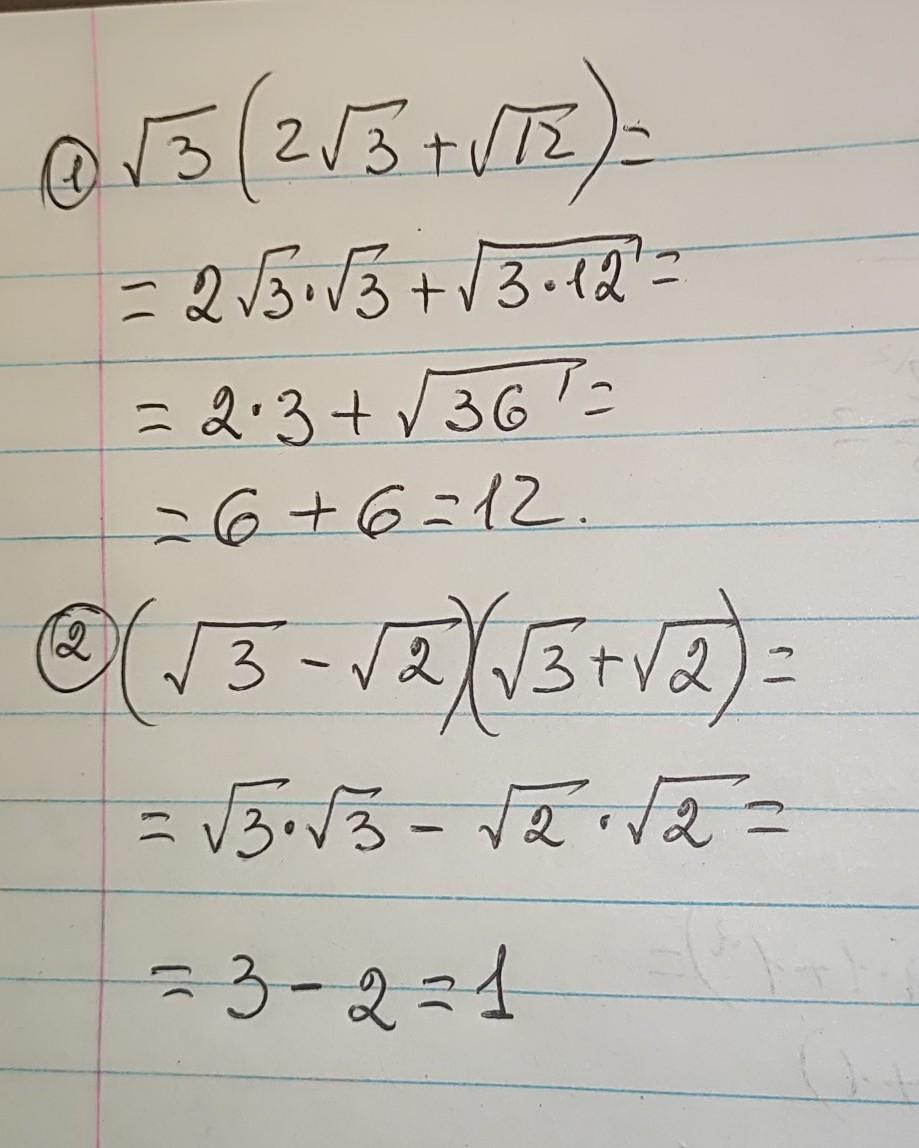 ① √3 (2√3 + √12) =
= 2√3·√3 + √3·12 =
= 2·3 + √36 =
= 6 + 6 = 12.
② (√3 - √2)(√3 + √2) =
= √3·√3 - √2·√2 =
= 3 - 2 = 1